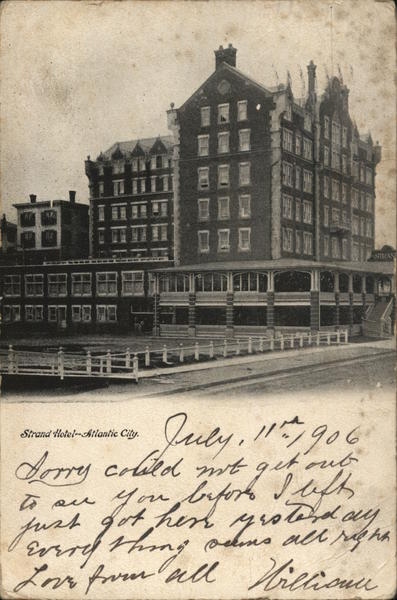 STRAND
Strand Hotel--Atlantic City.
July, 11th 1906
Sorry could not get out
to see you before I left
just got here yesterday
Everything seems all right
Love from all William